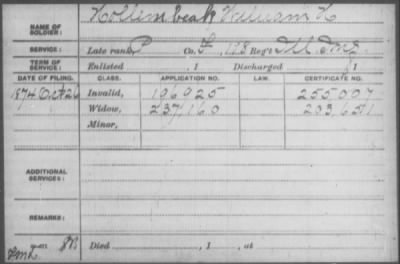 NAME OF SOLDIER: Hollembeak William H
SERVICE: Late rank, P Co. , 128 Reg't Ill Inf
TERM OF SERVICE: Enlisted , 1 Discharged , 1
DATE OF FILING. CLASS. APPLICATION NO. LAW. CERTIFICATE NO.
1874 Oct 26 Invalid, 196925 255007
Widow, 237160 233651
Minor,
ADDITIONAL SERVICES:
REMARKS:
Died , 1 , at